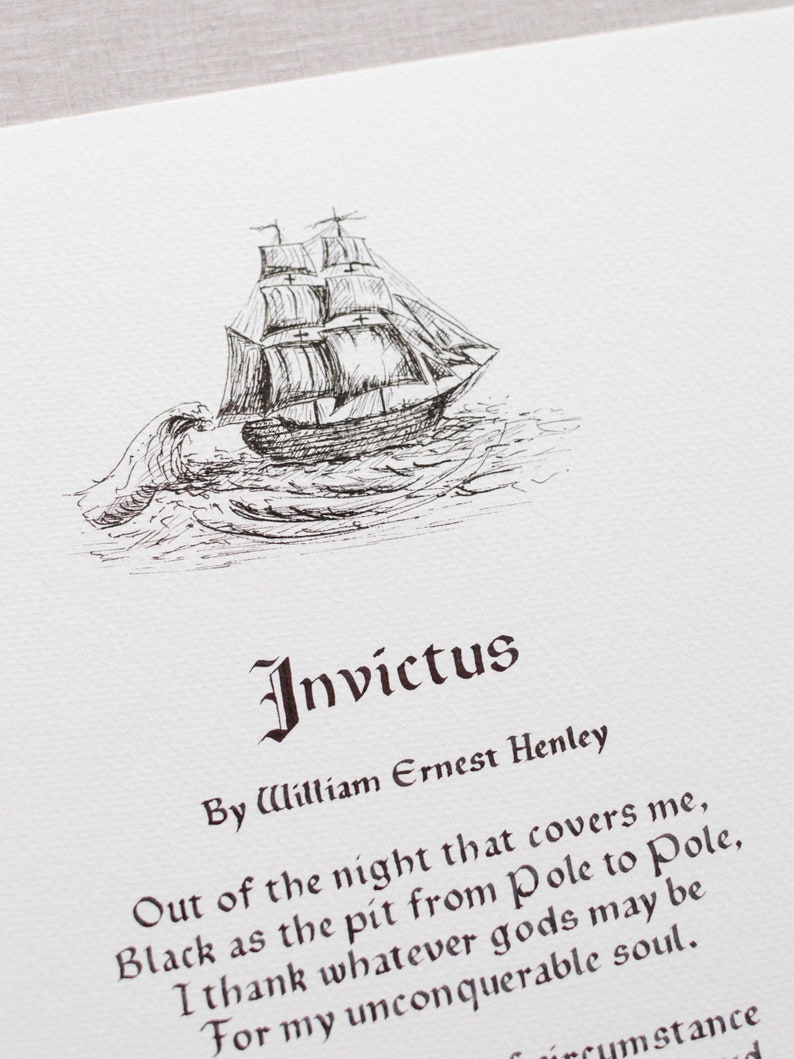 Invictus
By William Ernest Henley
Out of the night that covers me,
Black as the pit from Pole to Pole,
I thank whatever gods may be
For my unconquerable soul.
circumstance